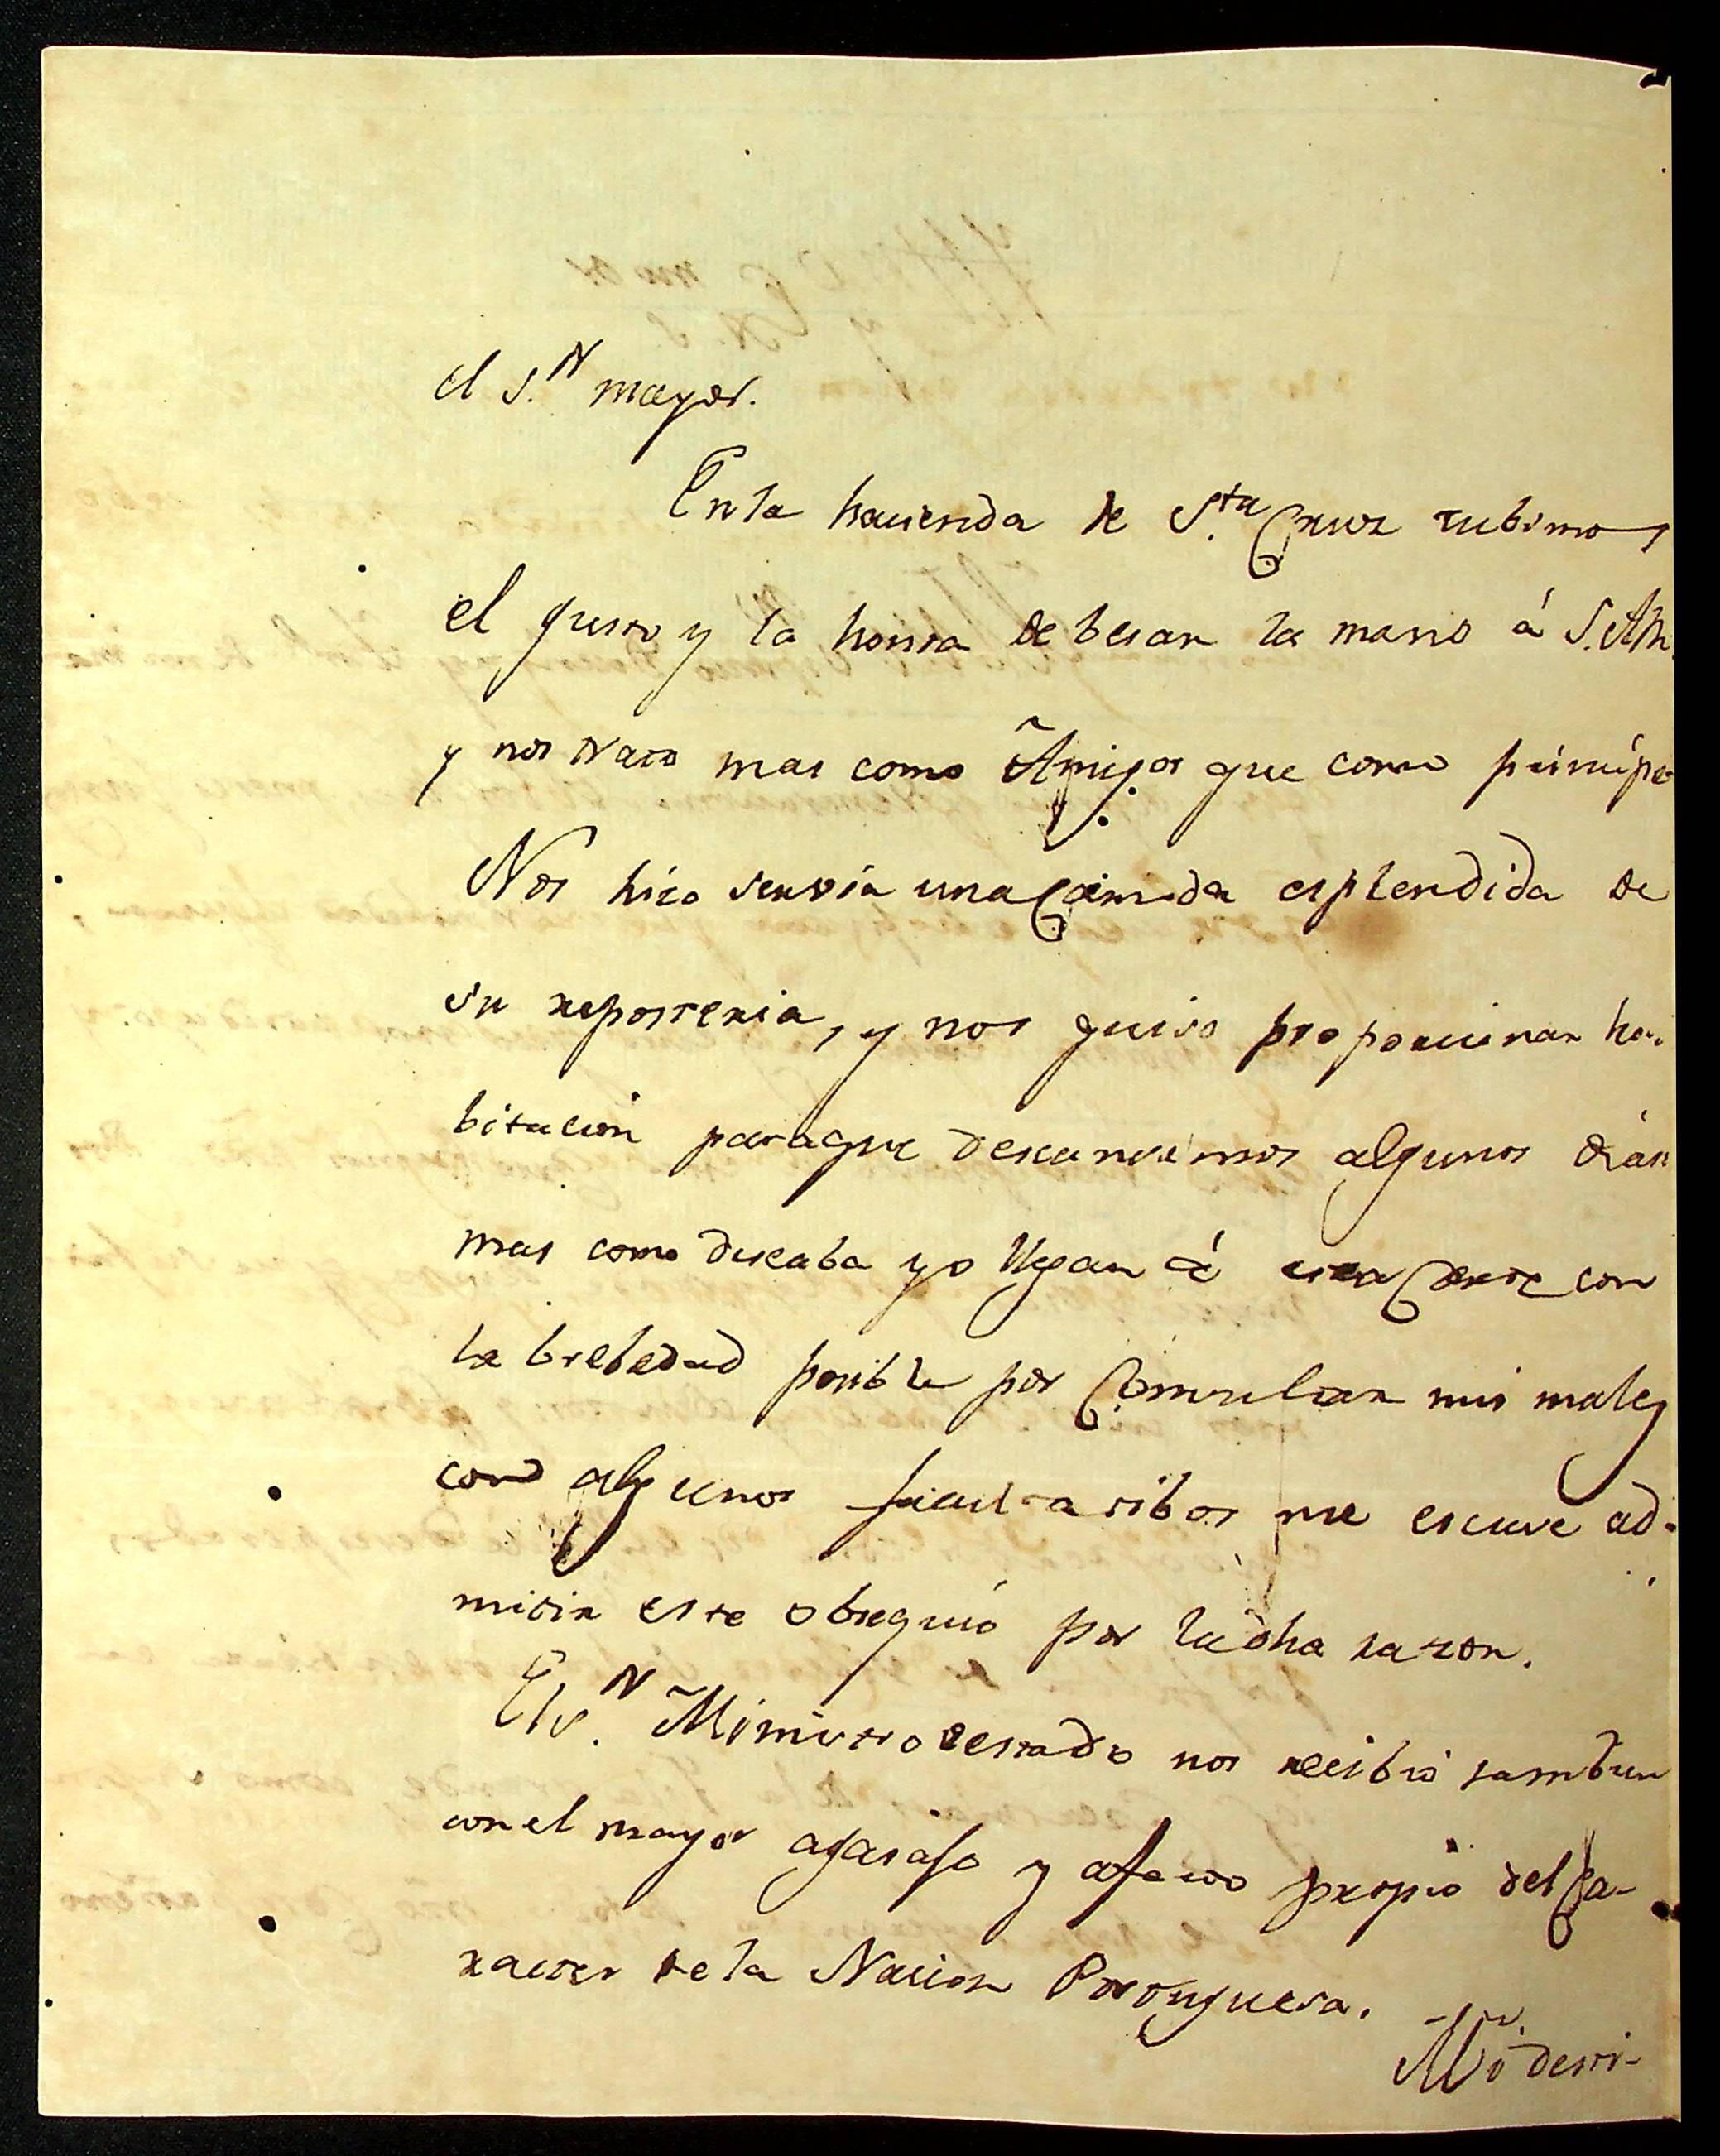 el S.ᴺ mayor.
En la hacienda de S.ta Cruz tubimos
el gusto y la honra de besar la mano á S.AR.
y nos trato mas como Amigos que como principe
Nos hizo servir una Comida esplendida de
su reposteria, y nos quiso proporcinar ha-
bitacion paraque descansemos algunos dias
mas como deseaba yo llegar á esta Corte con
la brebedad posible por Consultar mis males
con algunos facultatibos me escuse ad-
mitir este obsequio por la dha razon.
El S.ᴺ Ministro destado nos recibio tambien
con el mayor agasajo y afecto propio del Ca-
racter de la Nacion Portuguesa.
Mi desti-